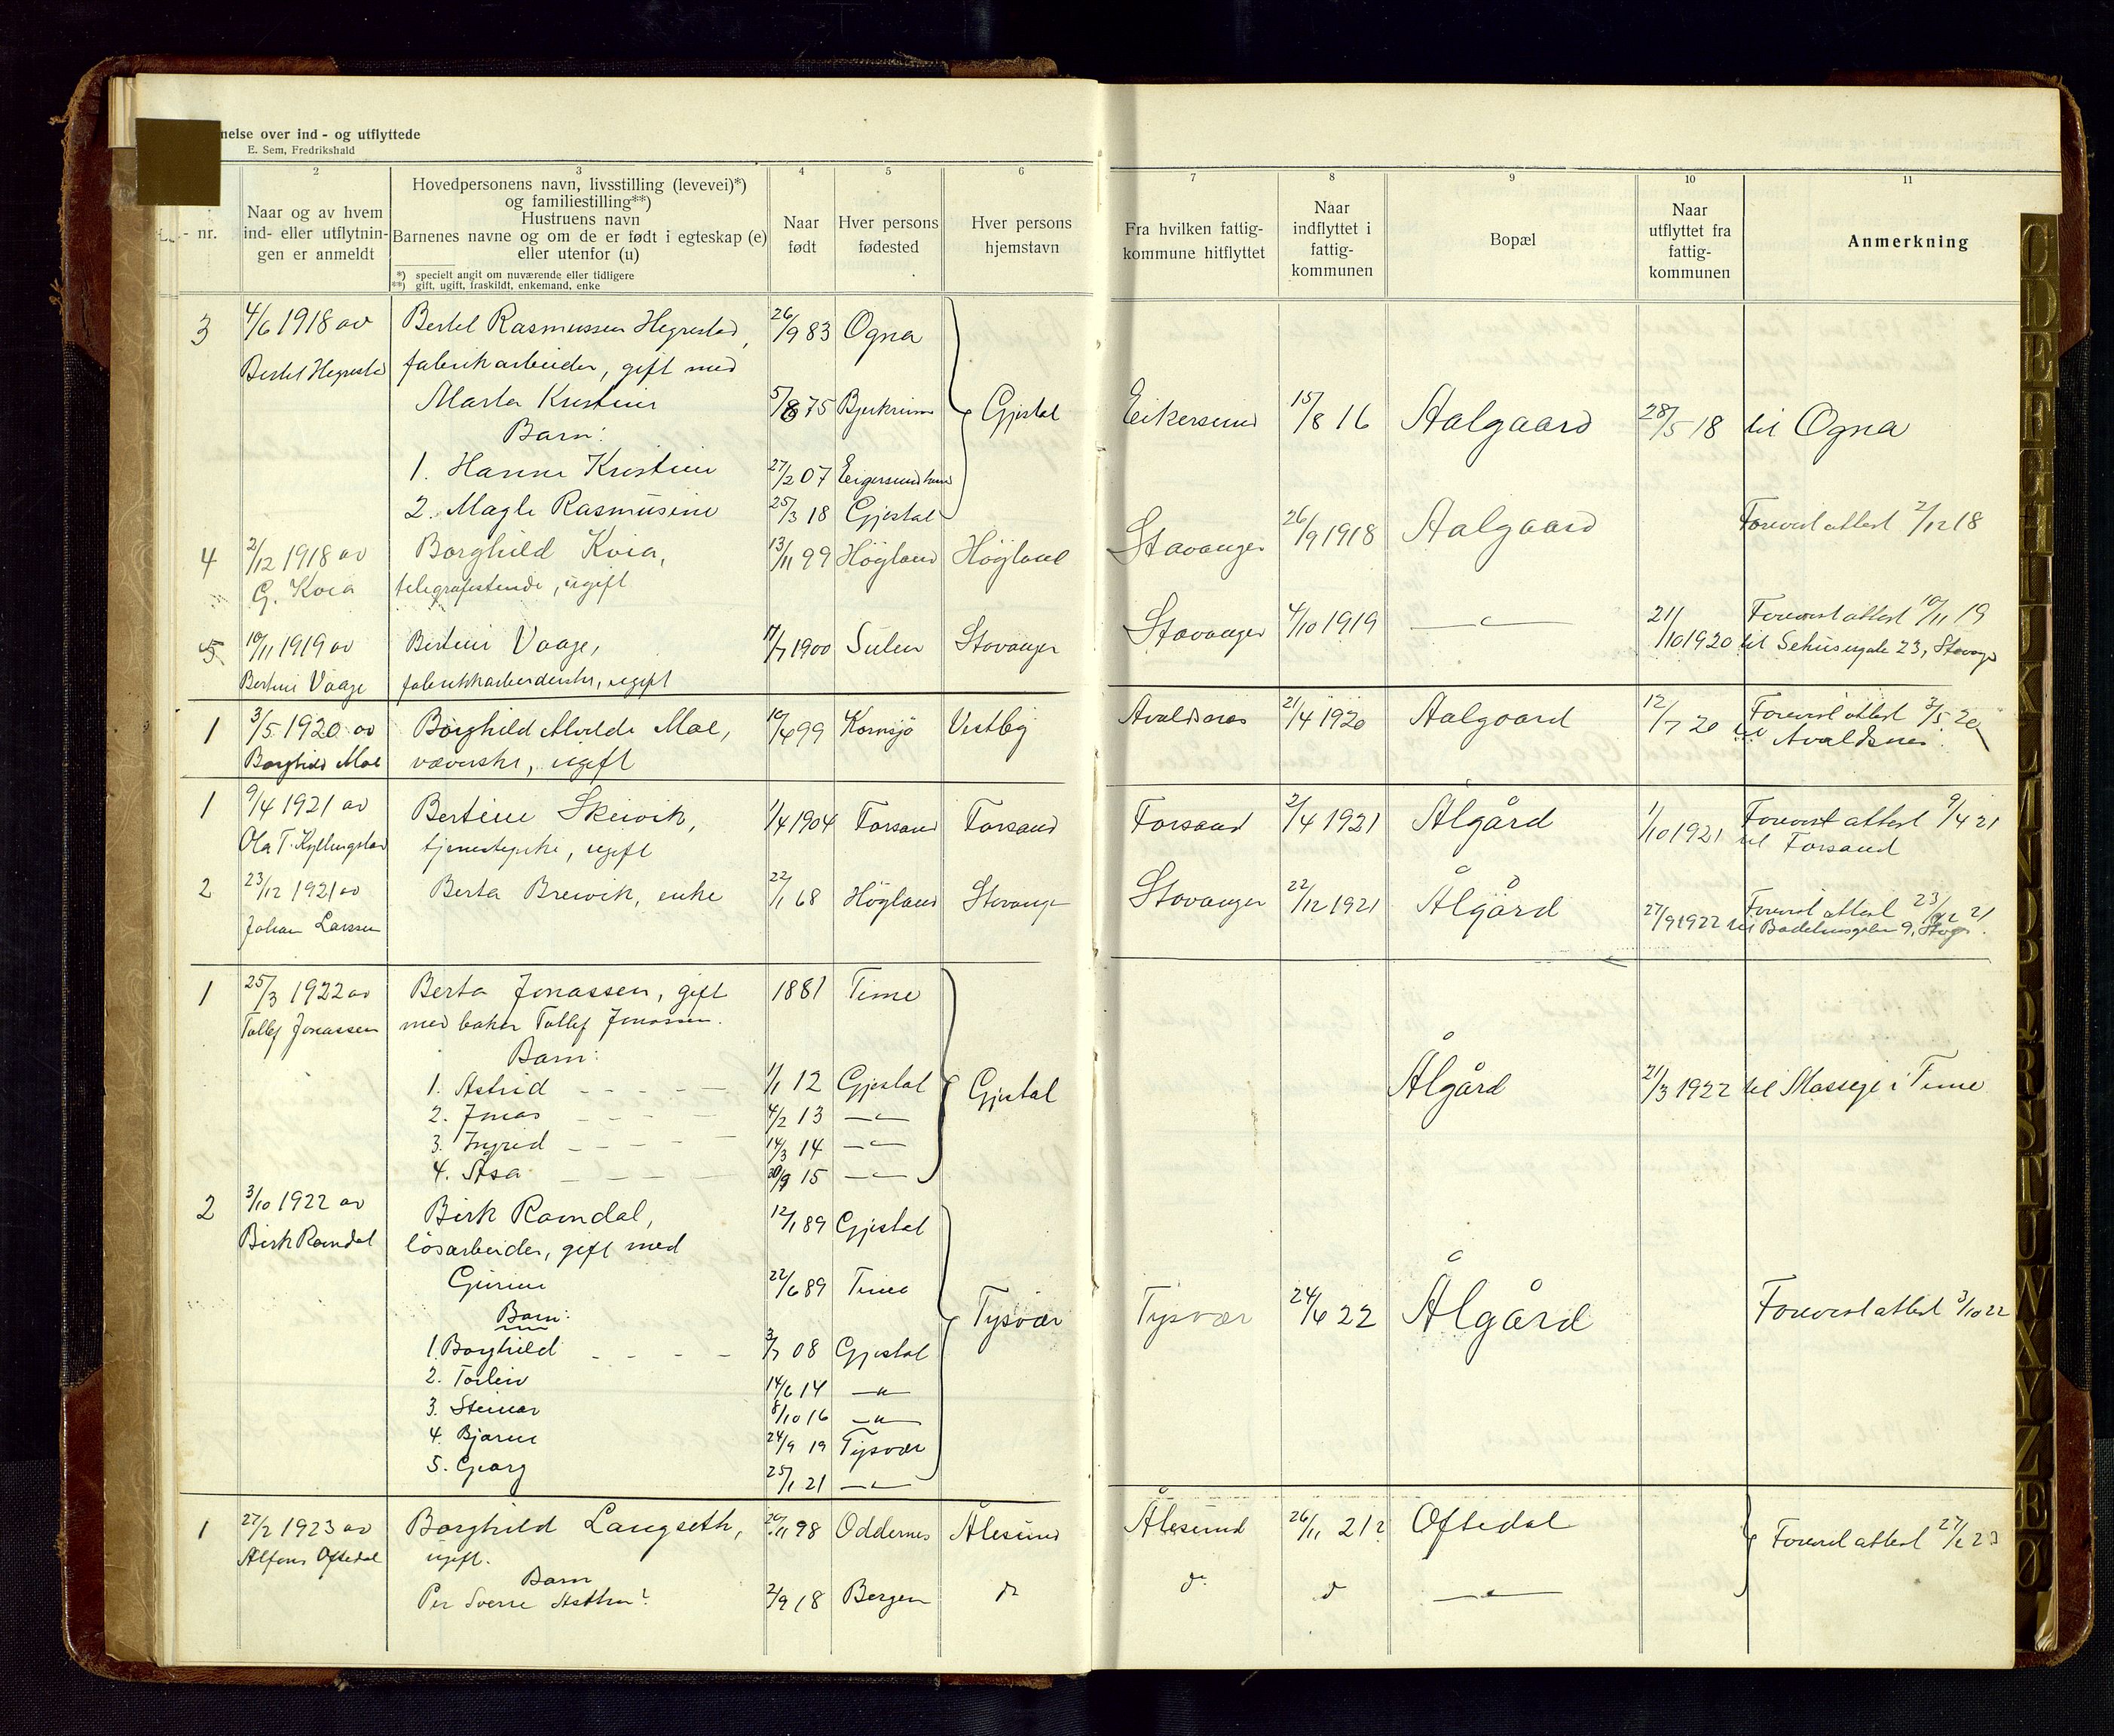 nelse over ind - og utflyttede
E. Sem, Fredrikshald
2 3 4 5 6 7 8 9 10 11
nr.
Naar og av hvem
ind- eller utflytnin-
gen er anmeldt
Hovedpersonens navn, livsstilling (levevei)*)
og familiestilling**)
Hustruens navn
Barnenes navne og om de er født i egteskap (e)
eller utenfor (u)
*) specielt angit om nuværende eller tidligere
**) gift, ugift, fraskildt, enkemand, enke
Naar
født
Hver persons
fødested
Hver persons
hjemstavn
Fra hvilken fattig-
kommune hitflyttet
Naar
indflyttet i
fattig-
kommunen
Bopæl
Naar
utflyttet fra
fattig-
kommunen
Anmerkning
3 4/6 1918 av Bertel Rasmussen Hegrestad, 26/9 83 Ogna
Bertel Hegrestad fabrikarbeider, gift med
Marta Kristine 5/8 75 Bjerkreim Gjestal Eikersund 15/8 16 Aalgaard 28/5 18 til Ogna
Barn:
1. Hanne Kristine 27/2 07 Eigersund
2. Magle Rasmusine 25/3 18 Gjestal
4 2/12 1918 av Borghild Kvia, 13/11 99 Högland Högland Stavanger 26/9 1918 Aalgaard Forevist attest 2/12 18
G. Kvia telegrafistinde, ugift
5 10/11 1919 av Bertine Vaage, 17/7 1900 Sulen Stavanger Stavanger 4/10 1919 — " — 21/10 1920 Forevist attest 10/11 19
Bertine Vaage fabrikkarbeiderske, ugift til Sehusgate 23, Stavanger
1 3/5 1920 av Borghild Alvilde Moe, 10/4 99 Kornsjö Vestby Avaldsnes 21/4 1920 Aalgaard 12/7 20 Forevist attest 3/5 20
Borghild Moe væverske, ugift til Avaldsnes
1 9/4 1921 av Bertine Skeivik, 1/4 1904 Forsand Forsand Forsand 2/4 1921 Ålgård 1/10 1921 Forevist attest 9/4 21
Ola T. Kyllingstad tjenestepike, ugift til Forsand
2 23/12 1921 av Berta Breivik, enke 22/1 68 Högland Stavanger Stavanger 22/12 1921 Ålgård 27/9 1922 Forevist attest 23/12 21
Johan Larsen til Badehusgaten 9, Stvgr.
1 25/3 1922 av Berta Jonassen, gift 1881 Time
Tollef Jonassen med baker Tollef Jonassen.
Barn:
1. Astrid 1/1 12 Gjestal Gjestal Ålgård 21/3 1922 til Mossige i Time
2. Jonas 4/2 13 — " —
3. Ingrid 14/3 14 — " —
4. Åsa 30/9 15 — " —
2 3/10 1922 av Birk Ramdal, 12/1 89 Gjestal
Birk Ramdal lösarbeider, gift med
Gurine 22/6 89 Time Tysvær Tysvær 24/6 22 Ålgård Forevist attest 3/10 22
Barn:
1. Borghild 3/7 08 Gjestal
2. Torleiv 14/6 14 — " —
3. Steinar 8/10 16 — " —
4. Bjarne 24/9 19 Tysvær
5. Georg 25/1 21 — " —
1 27/2 1923 av Borghild Langseth, 20/11 98 Oddernes Ålesund Ålesund 26/11 212 Oftedal Forevist attest 27/2 23
Alfons Oftedal ugift.
Barn
Per Sverre 2/9 18 Bergen do do do — " —
C D E F G H I J K L M N O P Q R S T U W X Y Z Æ Ø